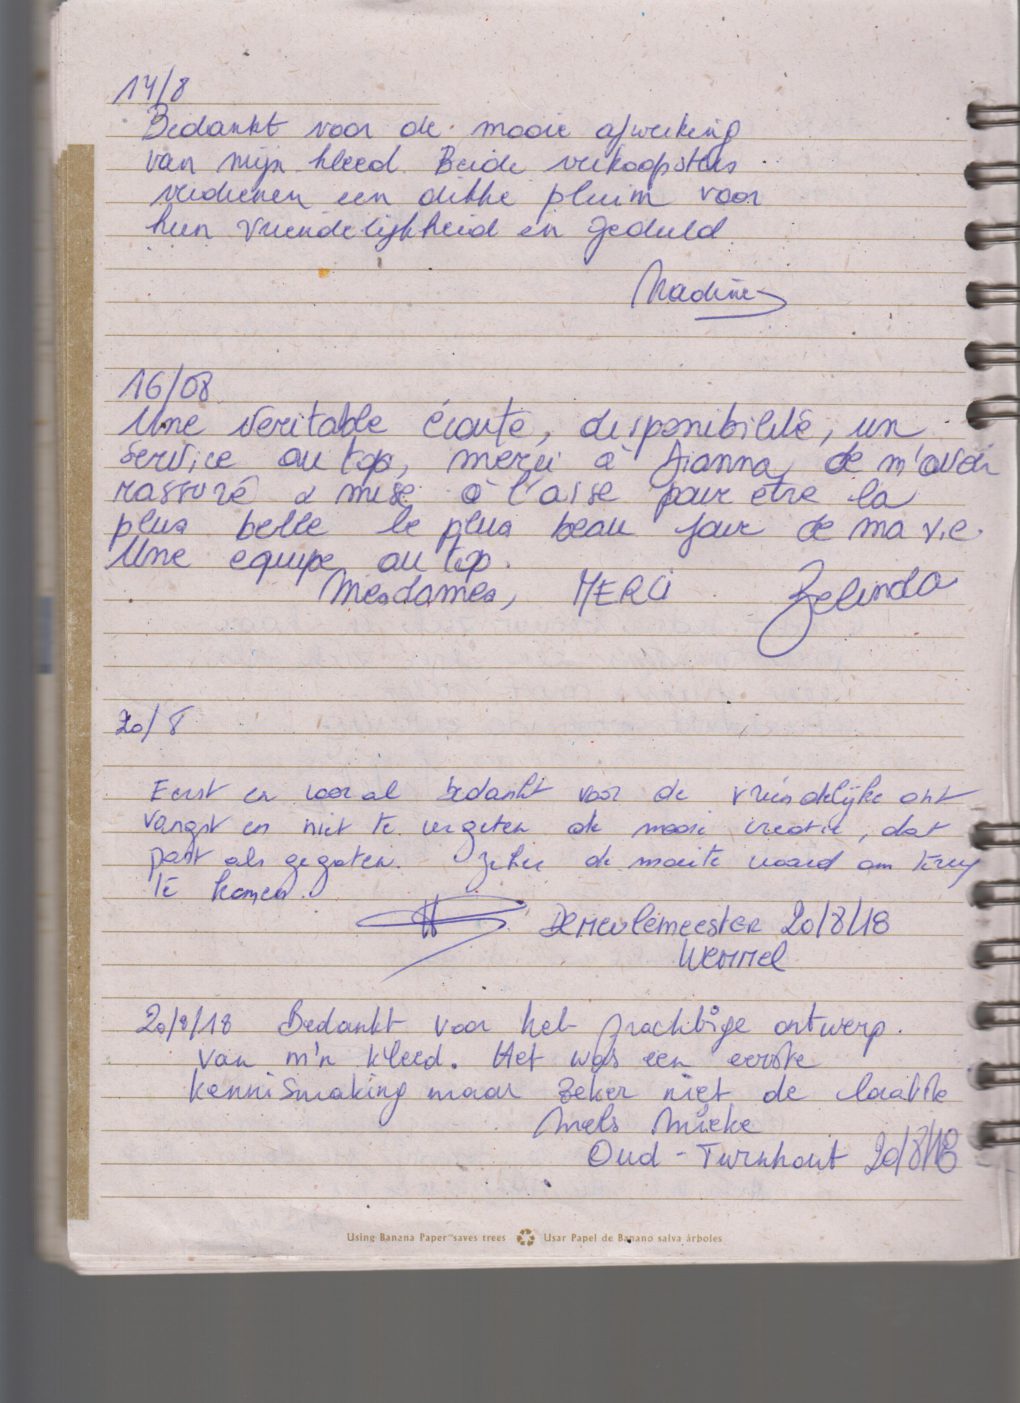 14/8
Bedankt voor de mooie afwerking
van mijn kleed. Beide verkoopsters
verdienen een dikke pluim voor
hun vriendelijkheid en geduld
Nadine
16/08
Une veritable écoute, disponibilité, un
service au top, merci à de m'avoir
rassuré & mise à l'aise pour être la
plus belle le plus beau jour de ma vie.
Une equipe au top.
Mesdames, MERCI Belinda
20/8
Eerst en vooral bedankt voor de vriendelijke ont
vangst en niet te vergeten de mooie creatie, dat
past als gegoten. Zeker de moeite waard om terug
te komen.
Demeulemeester 20/8/18
Wemmel
20/8/18 Bedankt voor het prachtige ontwerp.
van m'n kleed. Het was een eerste
kennismaking maar zeker niet de laatste
Mieke
Oud-Turnhout 20/8/18
Using Banana Paper™ saves trees Usar Papel de Banano salva árboles